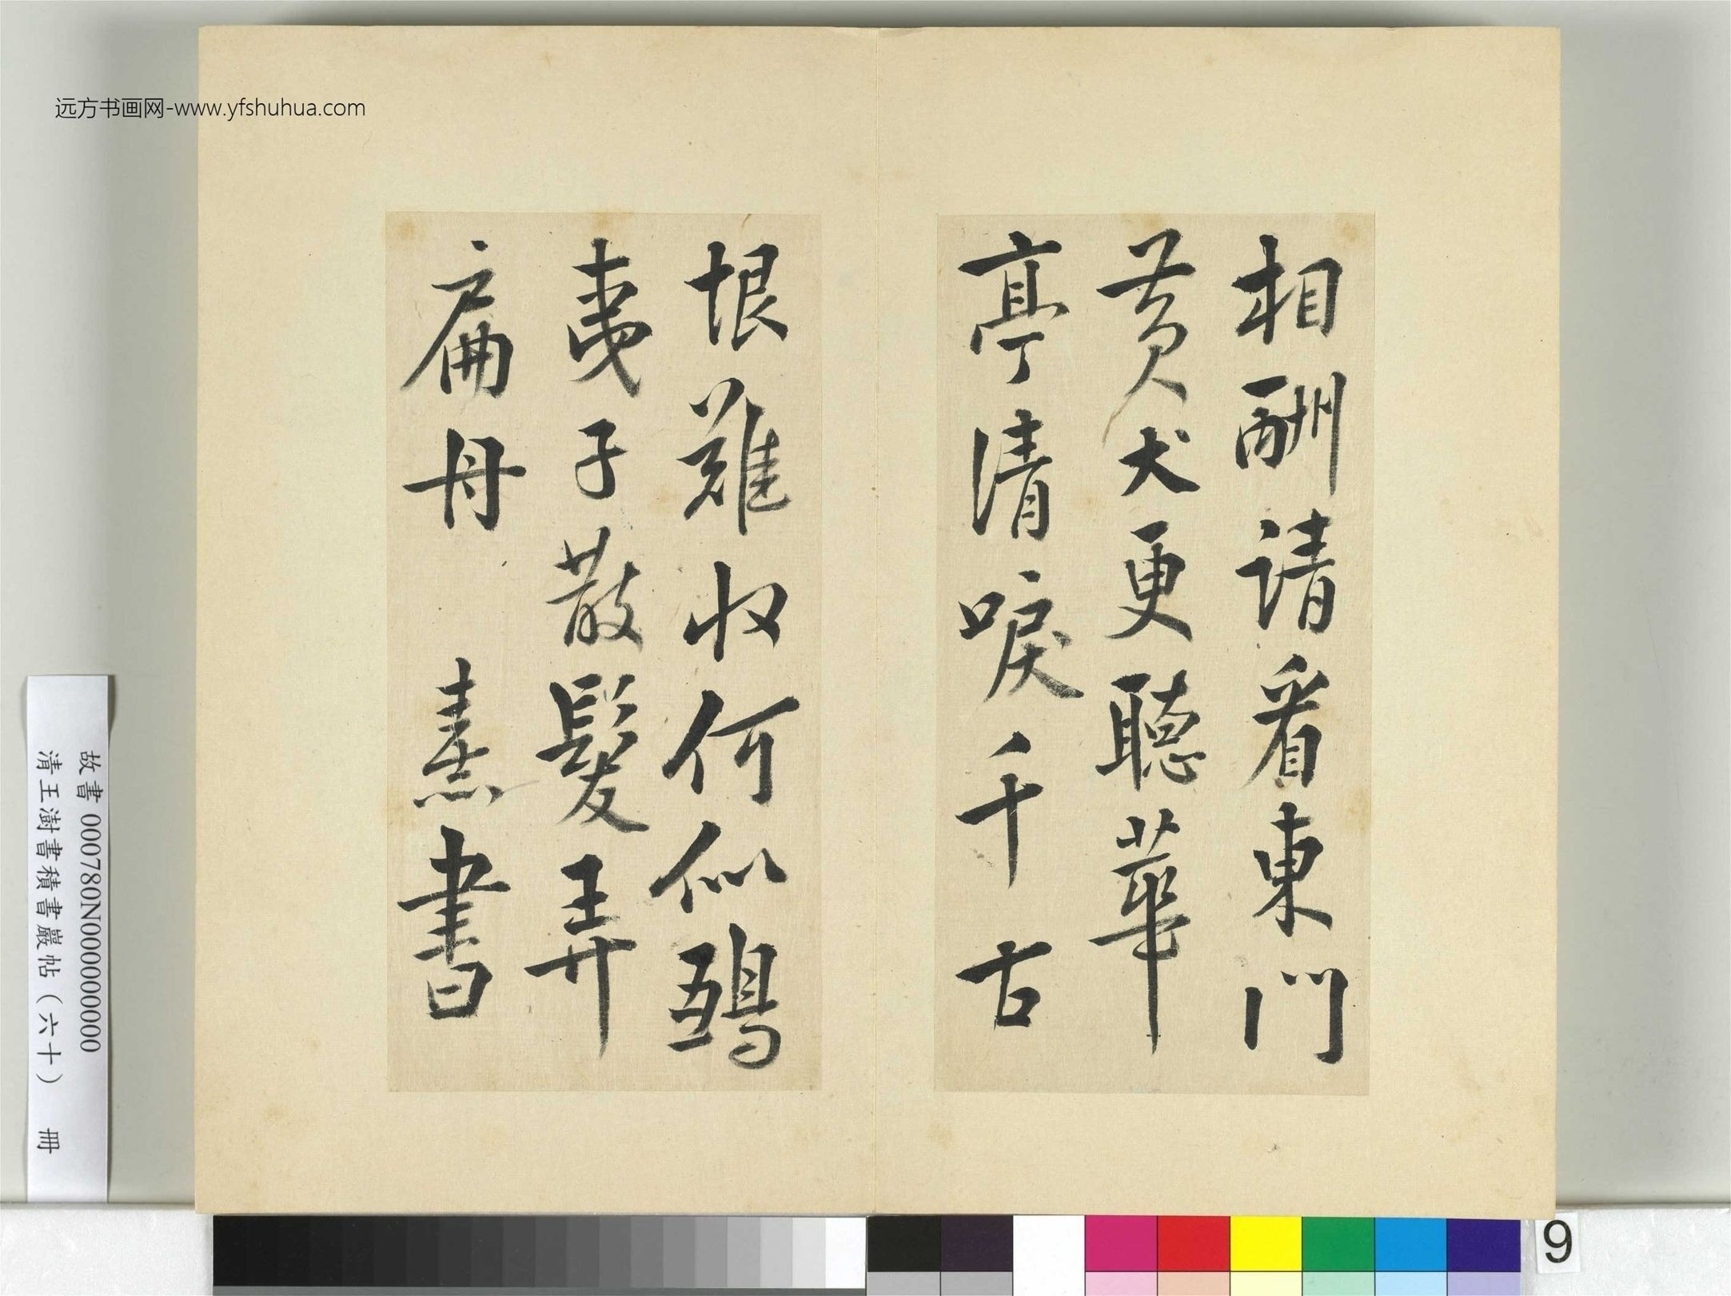 相酬請看東門
黃犬更聽華
亭清唳千古
恨難收何似鴟
夷子散髮弄
扁舟 熹書
远方书画网-www.yfshuhua.com
故書 000780N000000000
清王澍書積書巖帖（六十） 冊
9